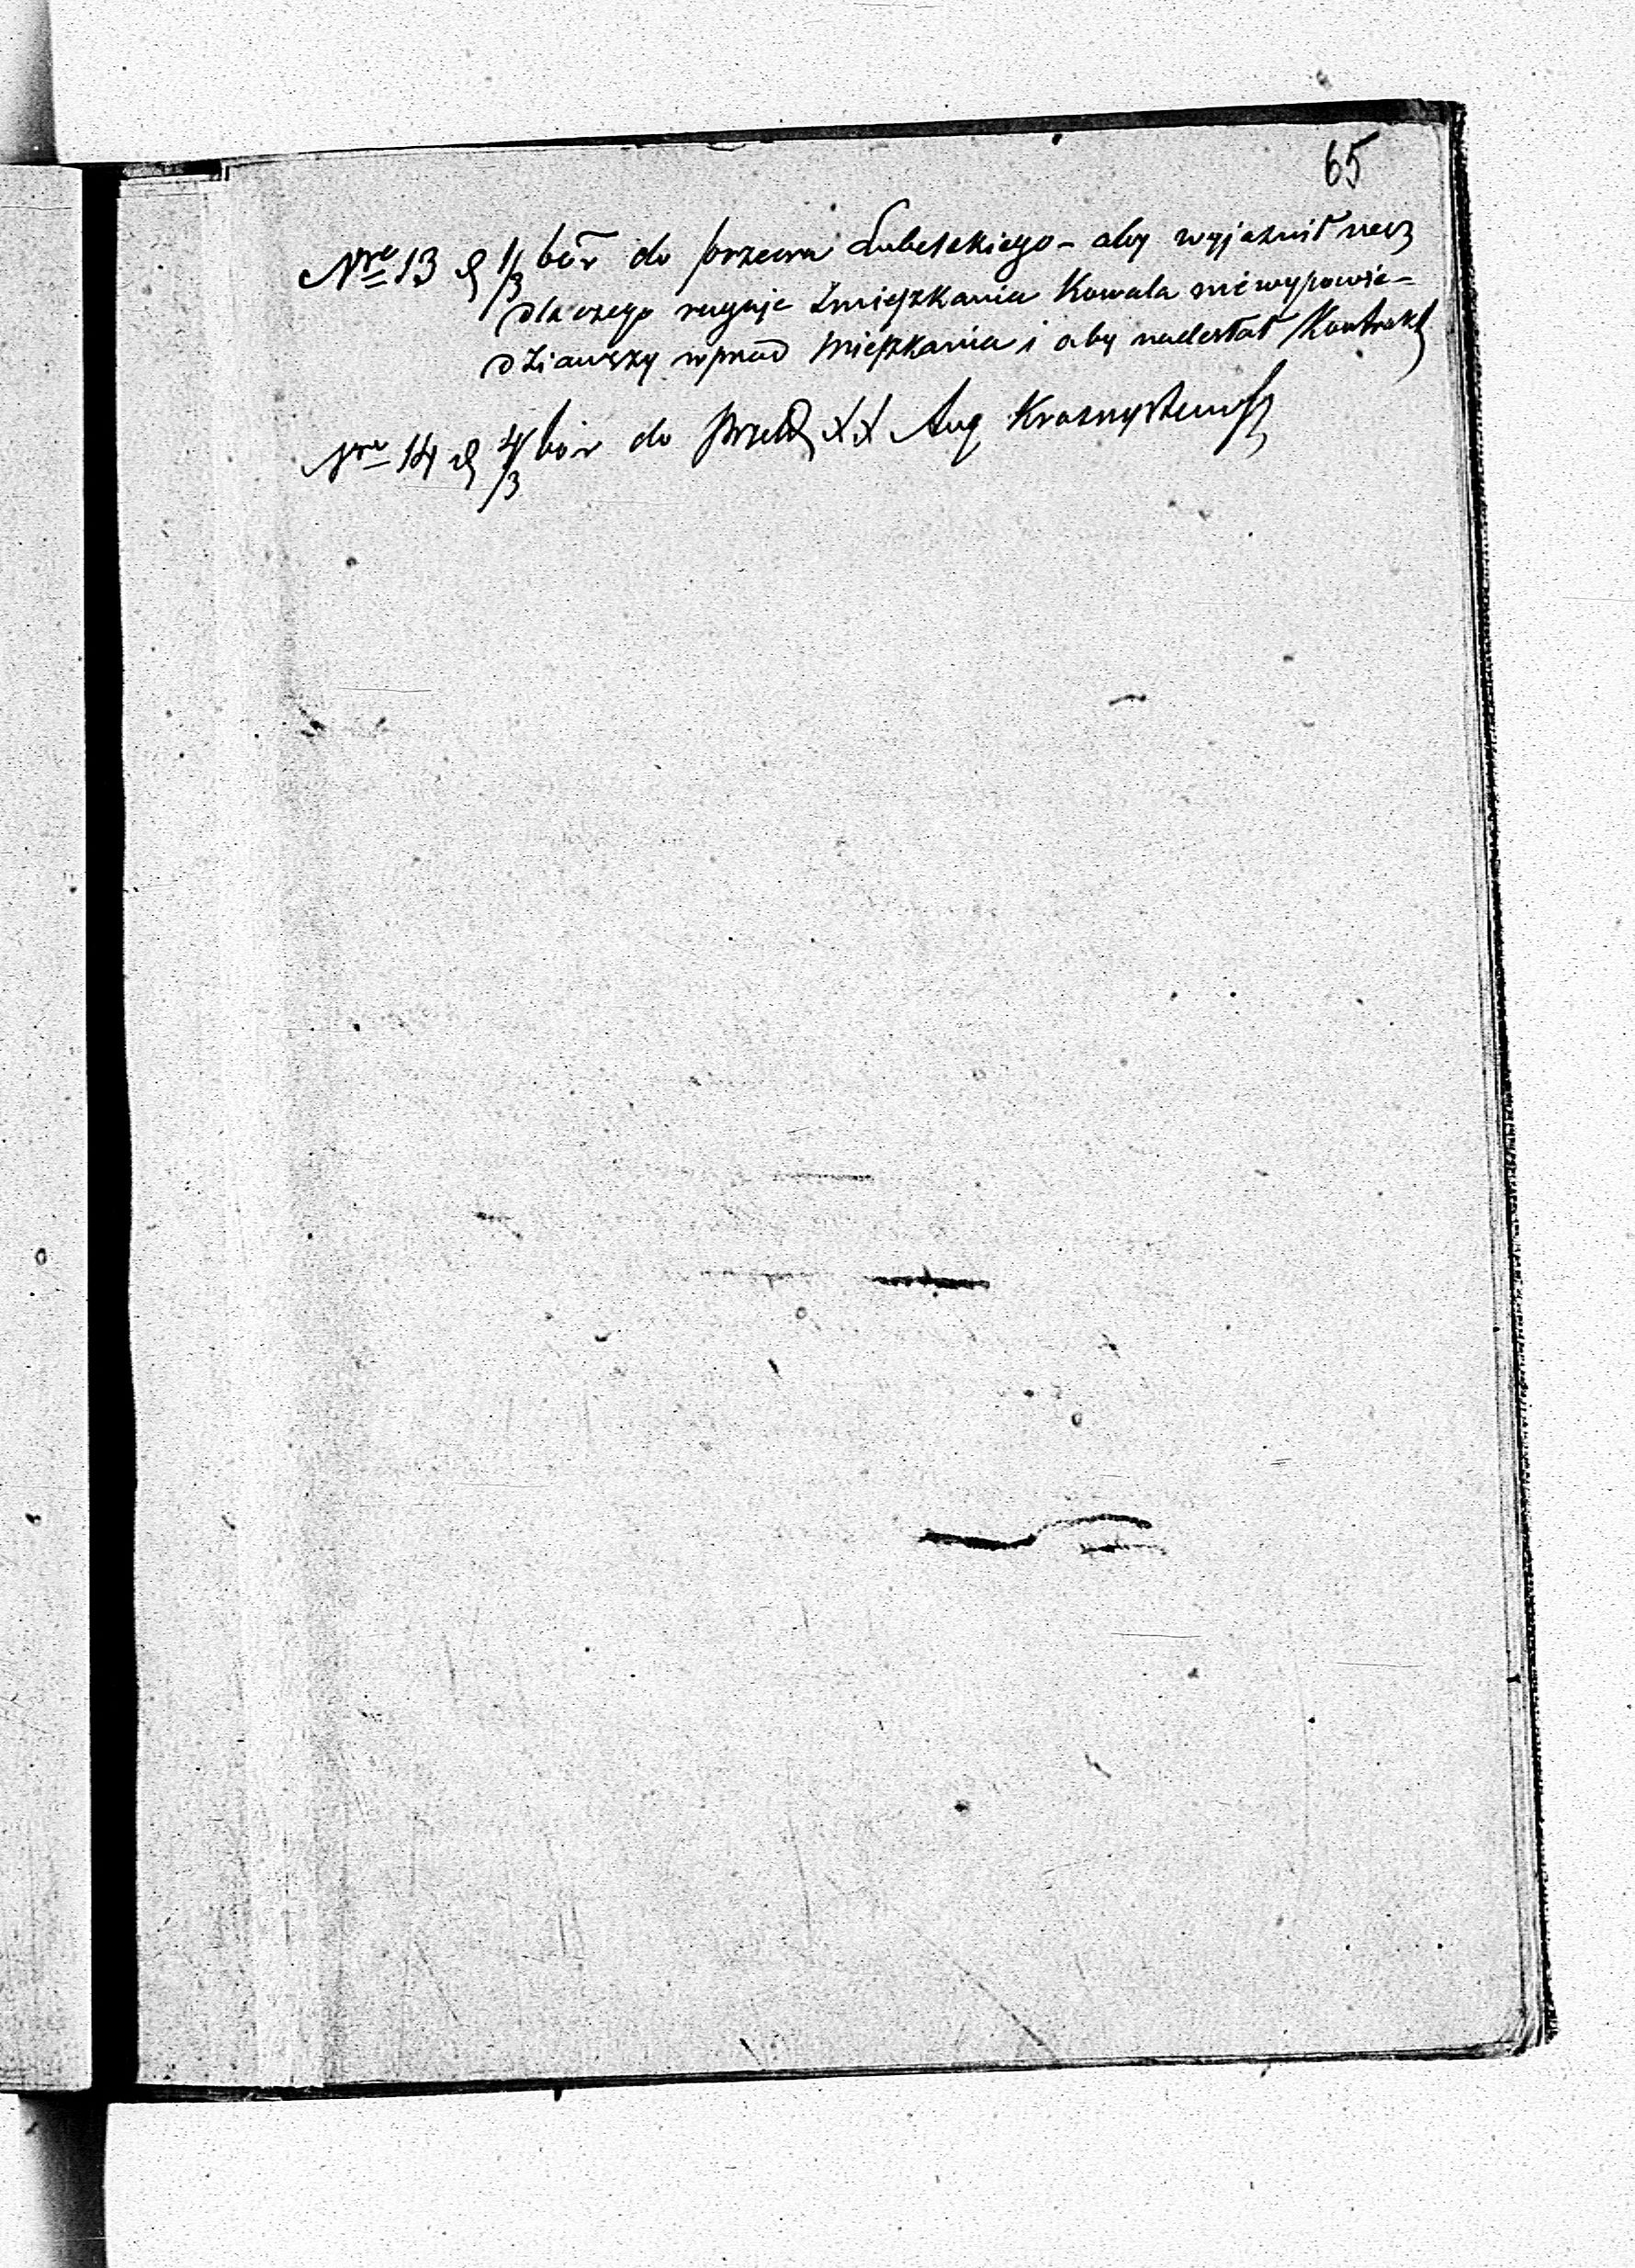 65
Nro 13 d 1/3 bór do przeora Lubelskiego – aby wyjaśnił rzecz
dla czego ruguje z mieszkania Kowala nie wypowie-
dziawszy wprzod mieszkania i aby nadesłał Kontrakt
Nro 14 d 4/3 bór do XX Aug